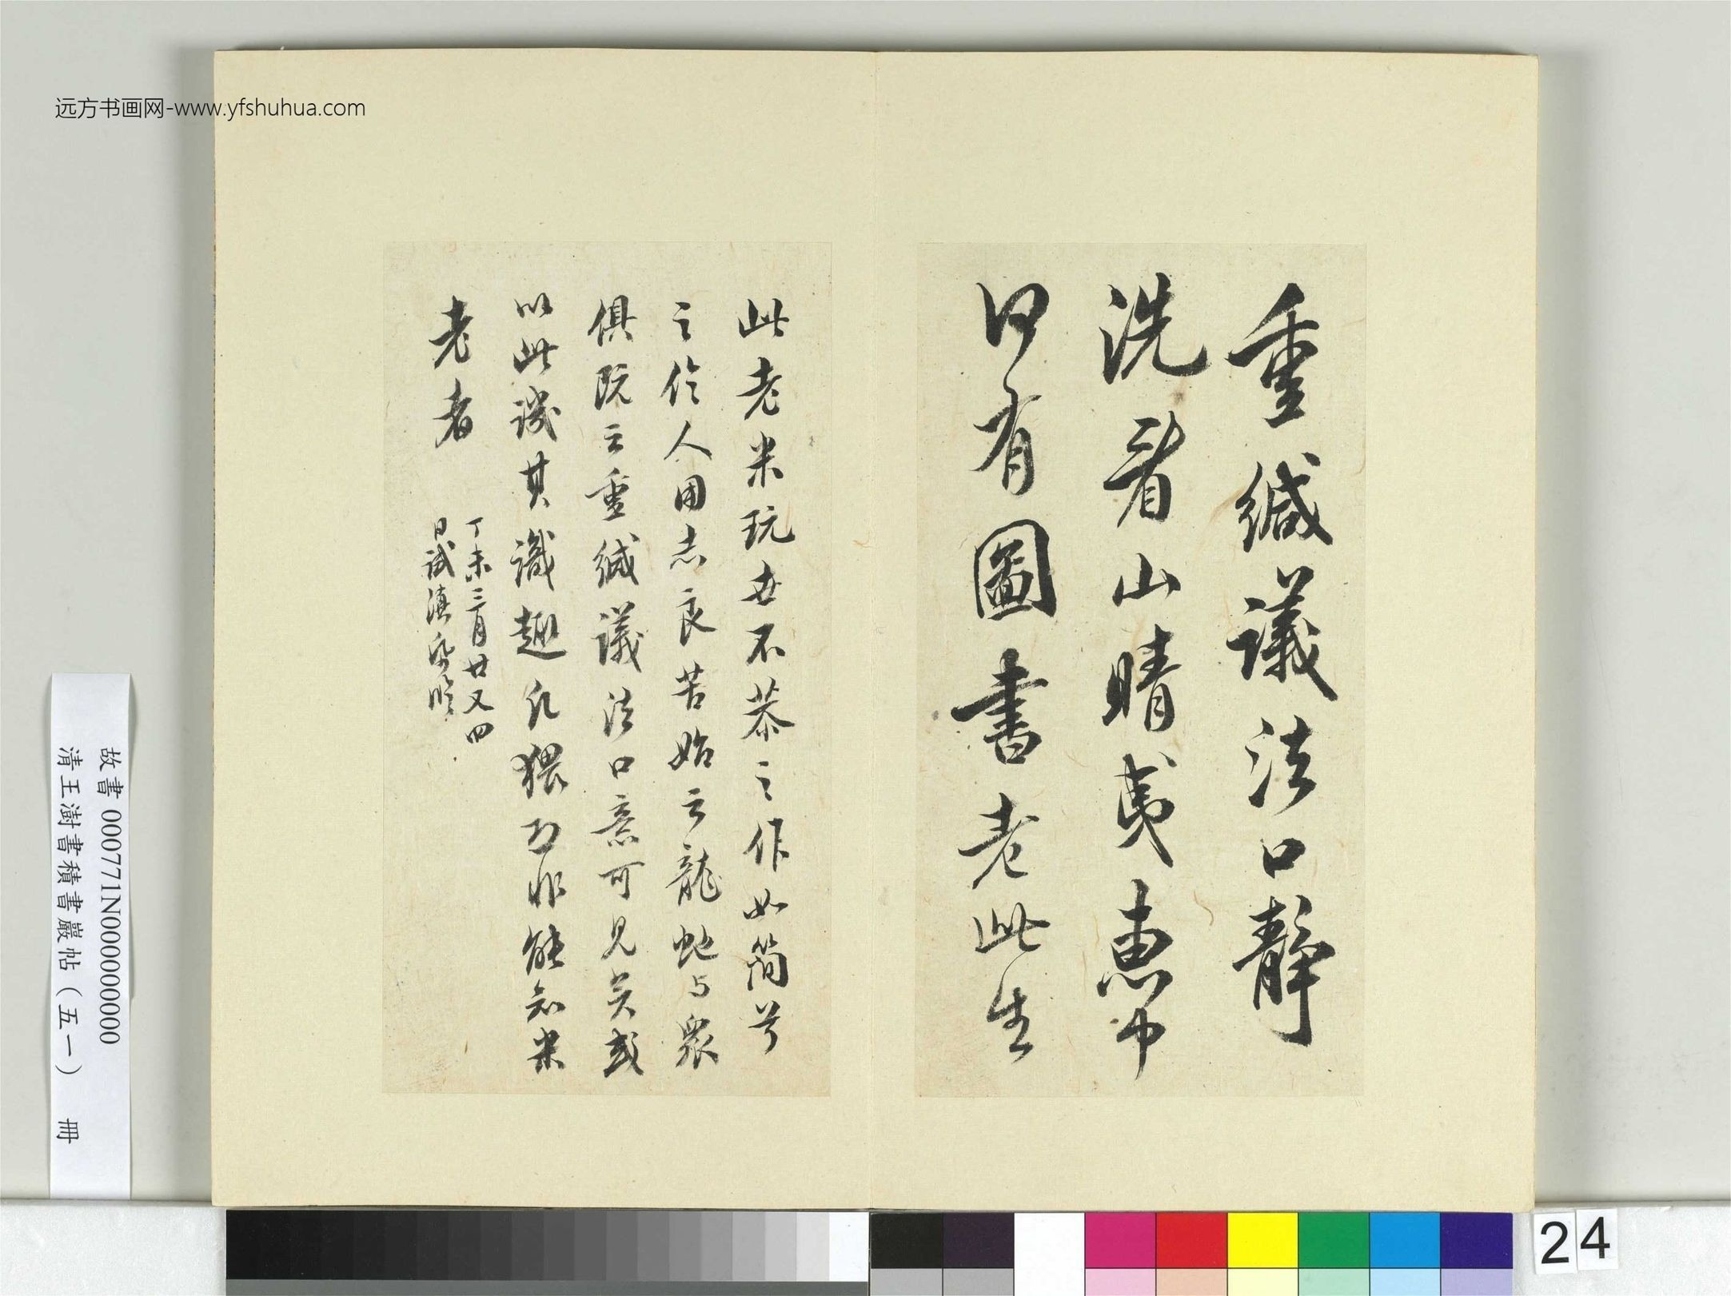 远方书画网-www.yfshuhua.com
重緘議法口靜
洗看山睛夷惠中
何有圖書老此生
此老米玩世不恭之作如簡兮
之伶人用志良苦始云龍蛇与衆
俱既云重緘議法口意可見矣或
以此譏其識趣凡猥乃非能知米
老者
丁未三月廿又四
日試滇
故書000771N000000000
清王澍書積書巖帖（五一） 冊
24